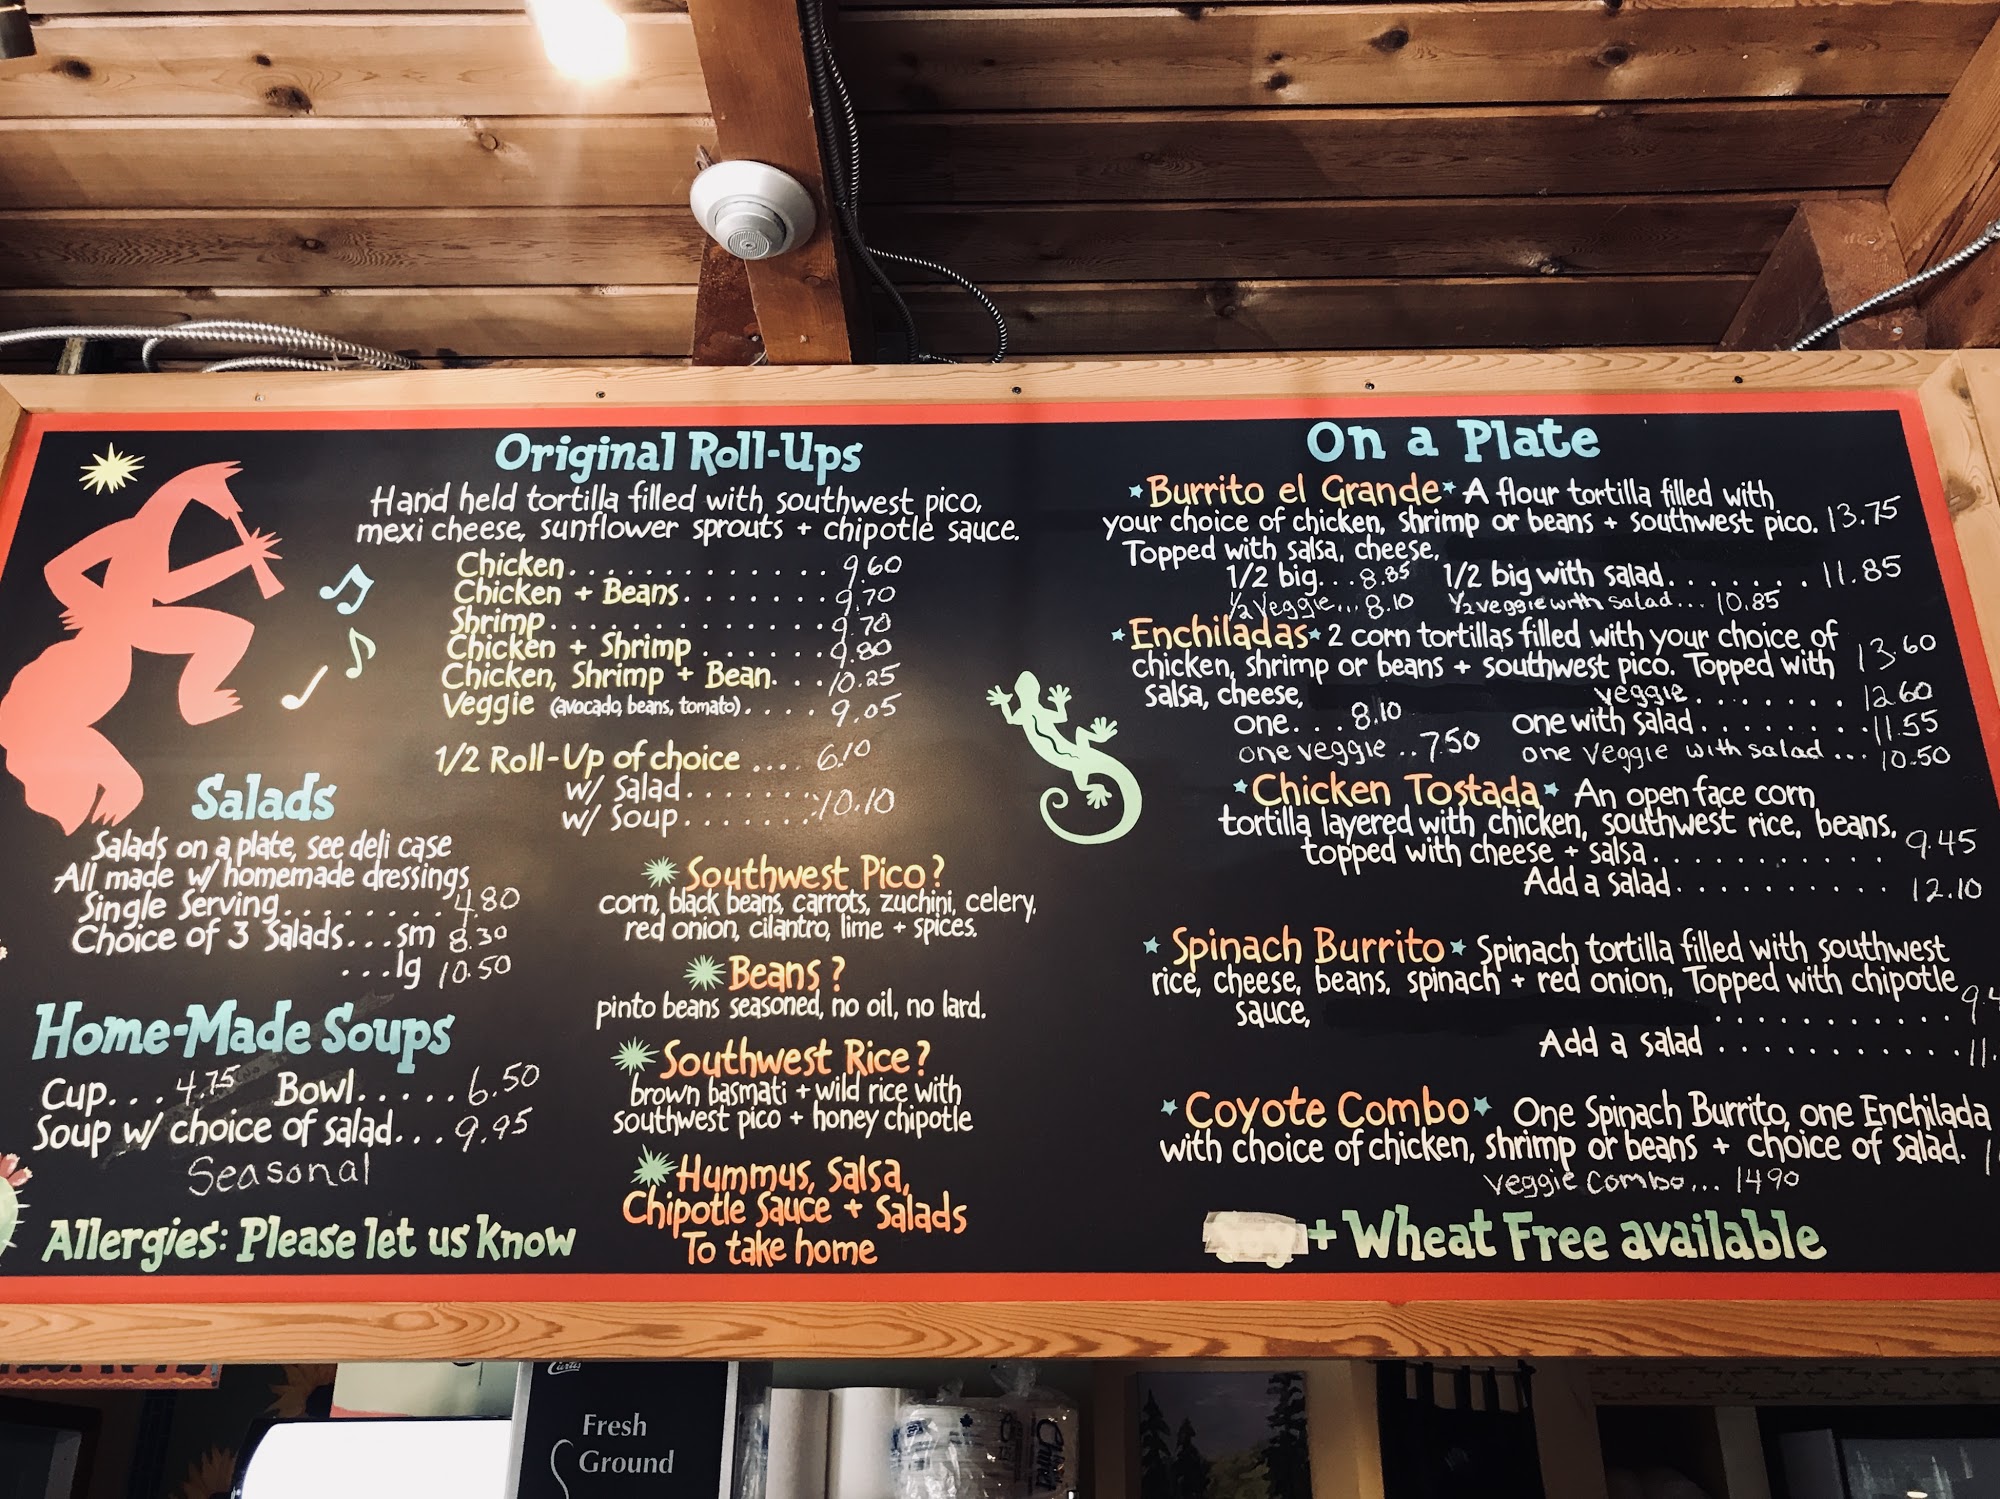 Original Roll-Ups
Hand held tortilla filled with southwest pico,
mexi cheese, sunflower sprouts + chipotle sauce.
Chicken............. 9.60
Chicken + Beans....... 9.70
Shrimp............. 9.70
Chicken + Shrimp....... 9.80
Chicken, Shrimp + Bean... 10.25
Veggie (avocado, beans, tomato).... 9.05
1/2 Roll-Up of choice .... 6.10
w/ Salad.......
w/ Soup....... 10.10
Salads
Salads on a plate, see deli case
All made w/ homemade dressings
Single Serving........ 4.80
Choice of 3 Salads...sm 8.30
...lg 10.50
Home-Made Soups
Cup... 4.75 Bowl..... 6.50
Soup w/ choice of salad... 9.95
Seasonal
Allergies: Please let us know
Southwest Pico?
corn, black beans, carrots, zuchini, celery,
red onion, cilantro, lime + spices.
Beans?
pinto beans seasoned, no oil, no lard.
Southwest Rice?
brown basmati + wild rice with
southwest pico + honey chipotle
Hummus, Salsa,
Chipotle Sauce + Salads
To take home
On a Plate
Burrito el Grande A flour tortilla filled with
your choice of chicken, shrimp or beans + southwest pico. 13.75
Topped with salsa, cheese,
1/2 big... 8.85 1/2 big with salad....... 11.85
1/2 veggie... 8.10 1/2 veggie with salad... 10.85
Enchiladas 2 corn tortillas filled with your choice of
chicken, shrimp or beans + southwest pico. Topped with 13.60
salsa, cheese, veggie....... 12.60
one... 8.10 one with salad........ 11.55
one veggie .. 7.50 one veggie with salad ... 10.50
Chicken Tostada An open face corn
tortilla layered with chicken, southwest rice, beans,
topped with cheese + salsa........... 9.45
Add a salad.......... 12.10
Spinach Burrito Spinach tortilla filled with southwest
rice, cheese, beans, spinach + red onion, Topped with chipotle
sauce, ...........
Add a salad ............
Coyote Combo One Spinach Burrito, one Enchilada
with choice of chicken, shrimp or beans + choice of salad.
veggie combo... 1490
+ Wheat Free available
Curtis
Fresh
Ground
Chinet